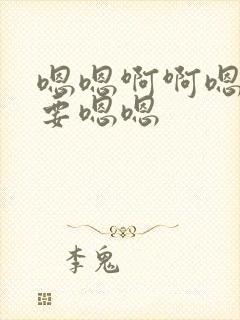 嗯嗯啊啊嗯
要嗯嗯
李鬼